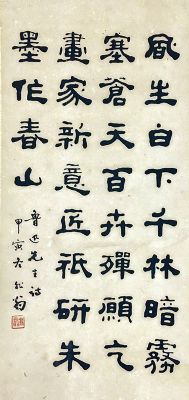 風生白下千林暗霧
塞蒼天百卉殫願乞
畫家新意匠祇研朱
墨作春山
魯迅先生詩
甲寅冬